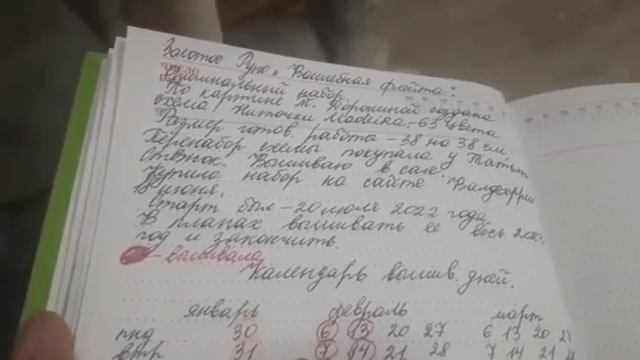 Золотое Руно „Волшебная флейта".
Оригинальный набор.
По картине М. Хорошиной создана
схема. Ниточки Madeira - 63 цвета
Размер готов. работы - 38 на 38 см.
Перенабор схемы покупала у Татьян
Стёжок. Вышиваю в саге.
Купила набор на сайте
июня.
Старт был - 20 июля 2022 года.
В планах вышивать её весь
год и закончить.
- вышивала
Календарь вышив. дней.
январь февраль март
пнд 30 6 13 20 27 6 13 20
втр 31 7 14 21 28 7 14 21